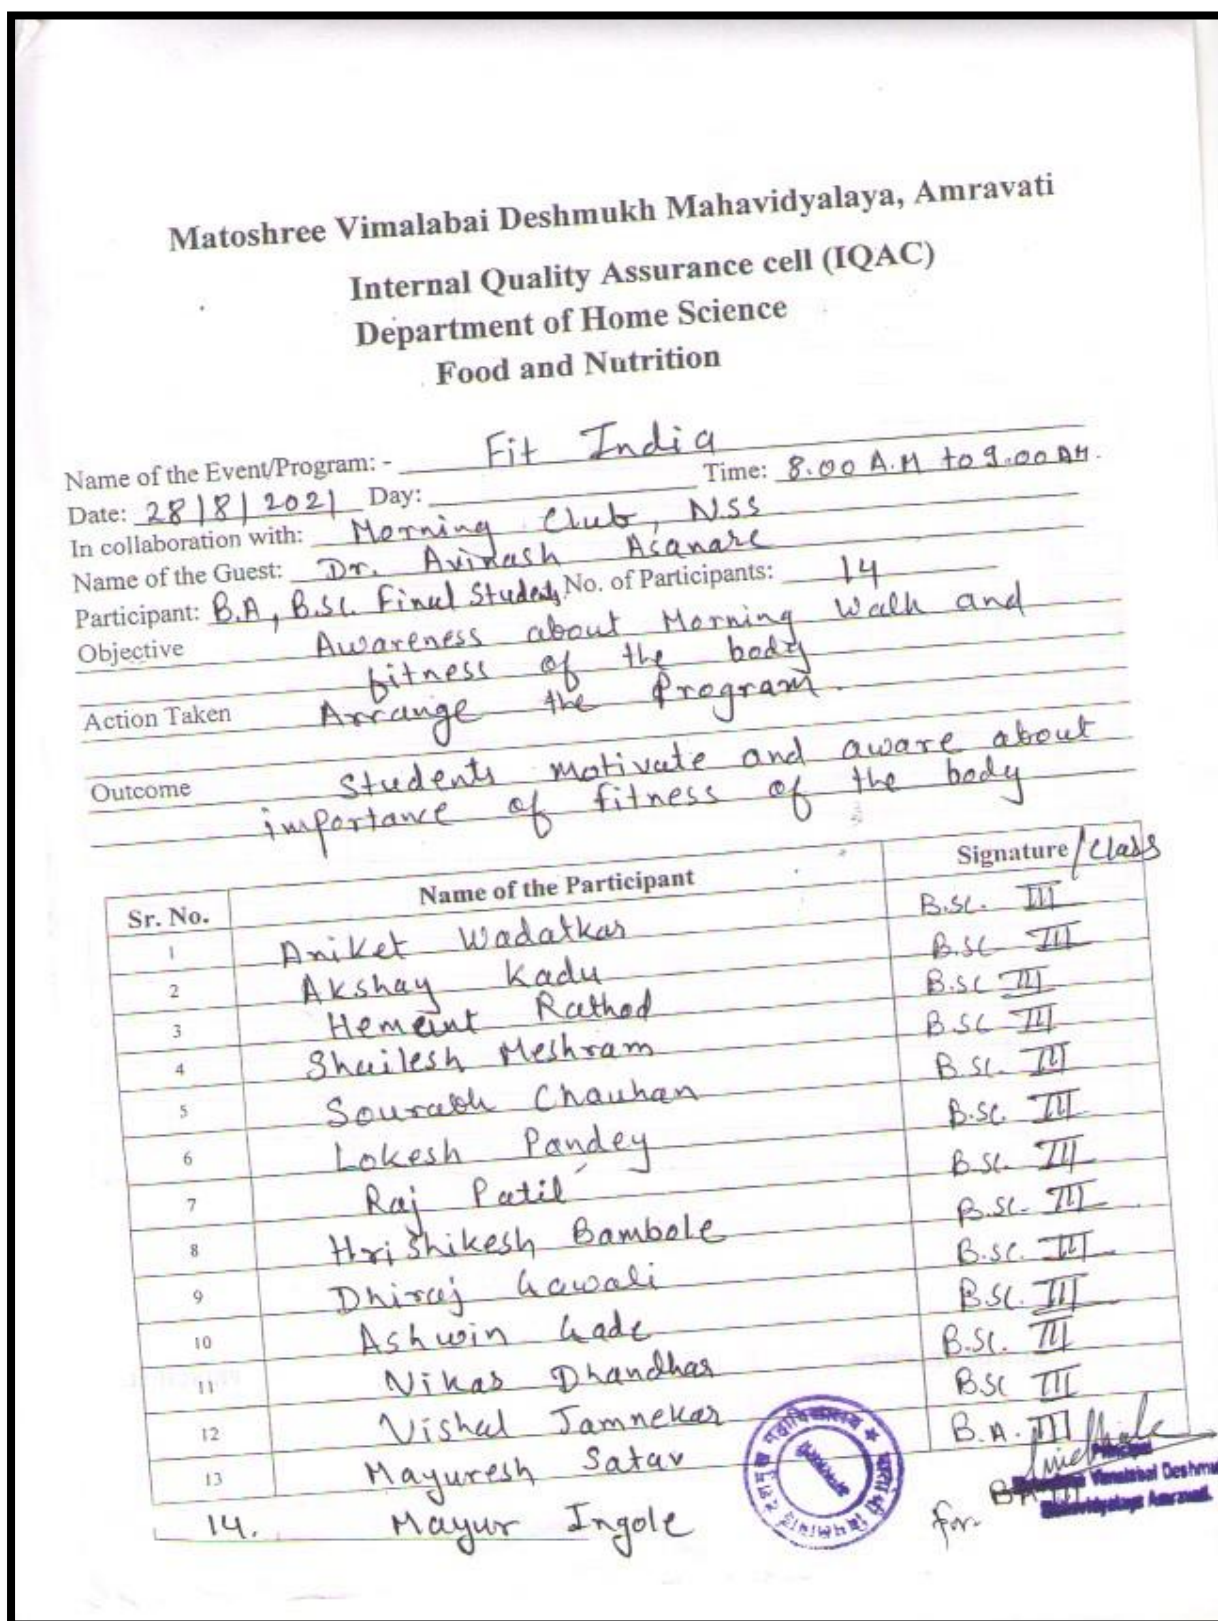 Matoshree Vimalabai Deshmukh Mahavidyalaya, Amravati
Internal Quality Assurance cell (IQAC)
Department of Home Science
Food and Nutrition
Name of the Event/Program: - Fit India
Date: 28/8/2021 Day: Time: 8.00 A.M to 9.00 AM.
In collaboration with: Morning Club, NSS
Name of the Guest: Dr. Avinash Asanare
Participant: B.A, B.Sc. Final Students No. of Participants: 14
Objective Awareness about Morning Walk and
fitness of the body
Action Taken Arrange the Program.
Outcome Students motivate and aware about
importance of fitness of the body
Sr. No. Name of the Participant Signature/Class
1 Aniket Wadatkar B.Sc. III
2 Akshay Kadu B.Sc III
3 Hemant Rathod B.Sc III
4 Shailesh Meshram B.Sc III
5 Sourabh Chauhan B.Sc. III
6 Lokesh Pandey B.Sc. III
7 Raj Patil B.Sc. III
8 Hrishikesh Bambole B.Sc. III
9 Dhiraj Gawali B.Sc. III
10 Ashwin Gade B.Sc. III
11 Vikas Dhandhar B.Sc. III
12 Vishal Jamnekar B.Sc III
13 Mayuresh Satav B.A. III
14. Mayur Ingole BA III
for Principal
Vimalabai Deshmu
Mahavidyalaya Amravati.